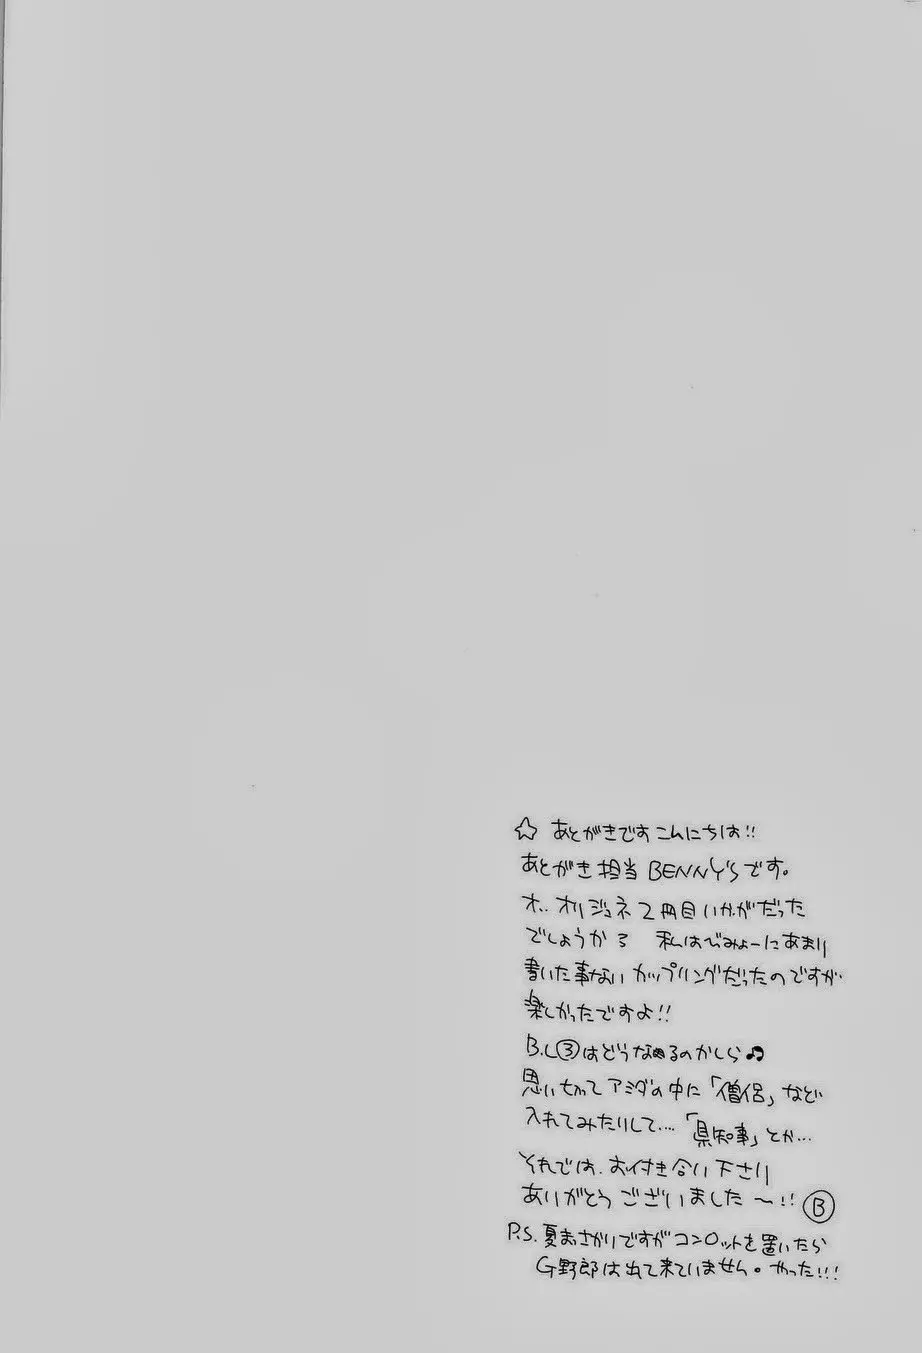 ☆ あとがきです こんにちは!!
あとがき担当 BENNY'Sです。
オ.. オリジュネ 2冊目いかがだった
でしょうか? 私はびみょーにあまり
書いた事ない カップリングだったのですが
楽しかったですよ!!
B.L③はどうなるのかしら♫
思い切ってアミダの中に「僧侶」など
入れてみたりして…. 「県知事」とか…
それでは、お付き合い下さり
ありがとうございました〜!! Ⓑ
P.S. 夏まっさかりですがコンロットを置いたら
G野郎は出て来ていません。やった!!!